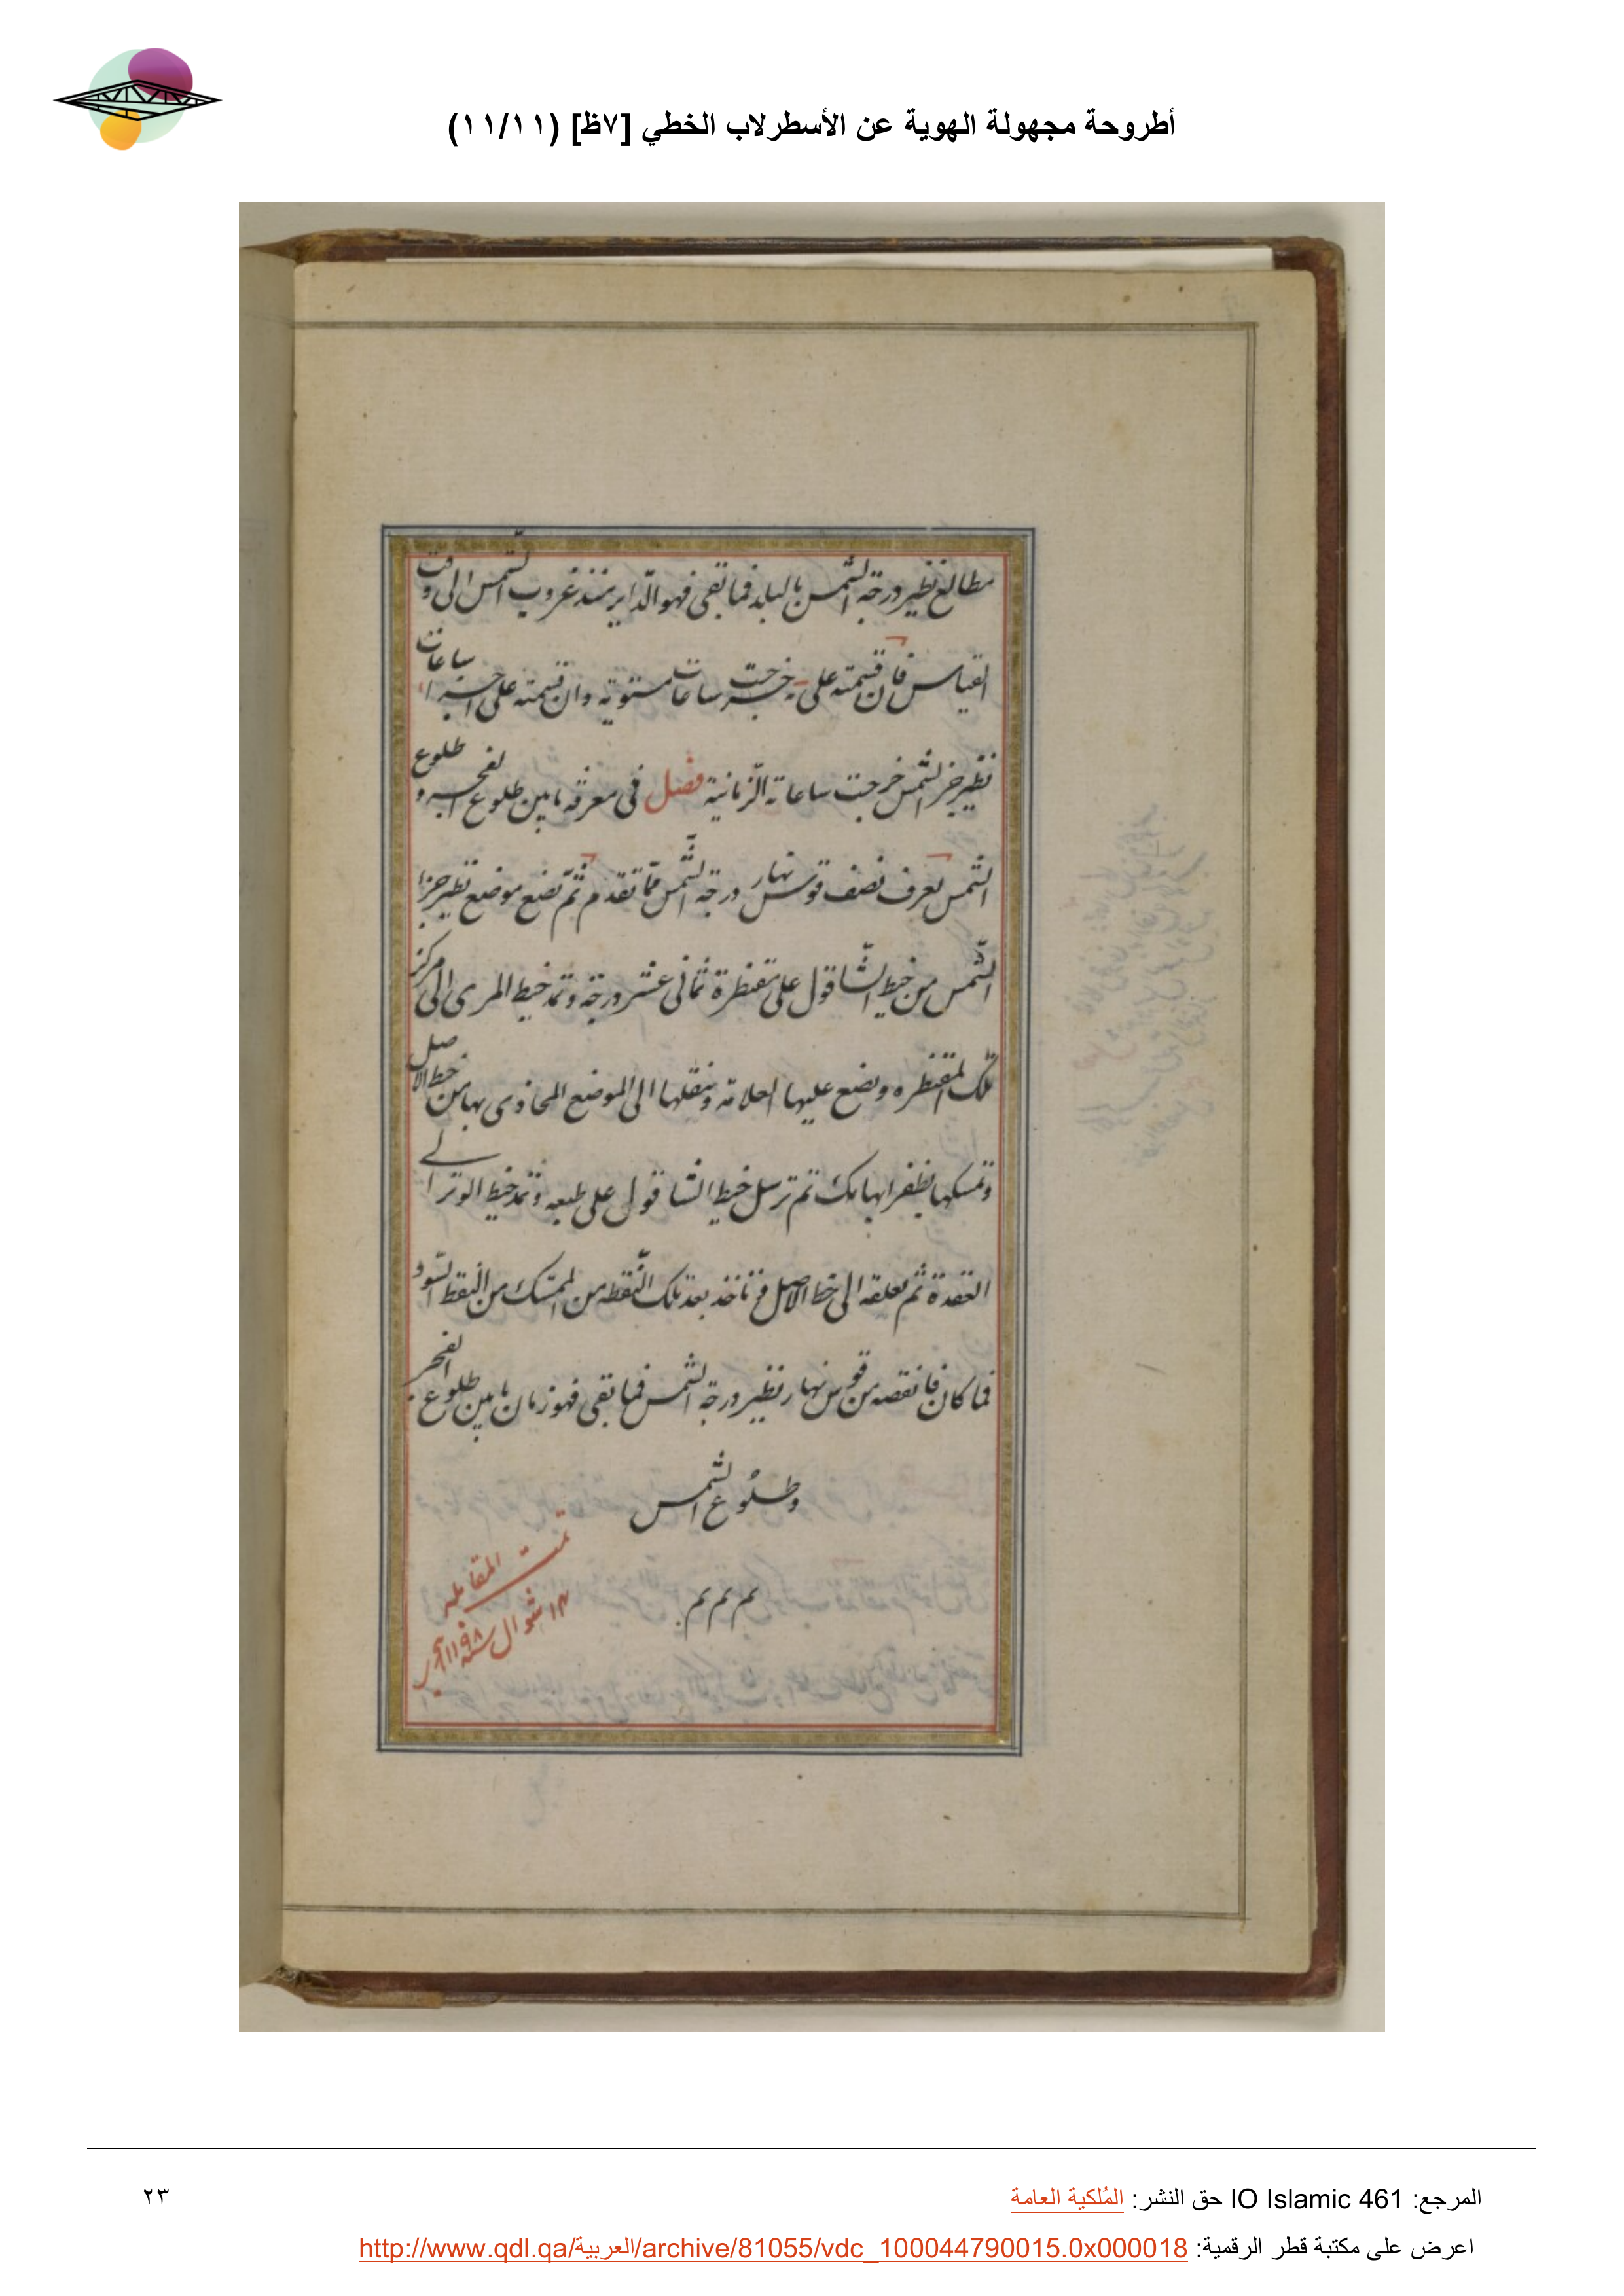 أطروحة مجهولة الهوية عن الأسطرلاب الخطي [٧ظ] (١١/١١)
مطالع نظير درجة الشمس بالبلد فما بقى فهو الداير منذ غروب الشمس الى وقت
القياس فان قسمته على يه خرجت ساعات مستوية وان قسمته على اجزاء ساعات
نظير جزء الشمس خرجت ساعاته الزمانية فصل فى معرفة ما بين طلوع الفجر و طلوع
الشمس تعرف نصف قوس نهار درجة الشمس مما تقدم ثم تضع موضع نظير جزء
الشمس من خيط الشاقول على مقنطرة ثمانى عشر درجة وتمد خيط المرى الى مركز
تلك المقنطره وتضع عليها العلامة وتنقلها الى الموضع المحاذى بها من خط الاصل
وتمسكها بظفر ابهامك ثم ترسل خيط الشاقول على طبعه وتمد خيط الوتر الى
العقدة ثم تعلقه الى خط الاصل فتأخذ بعد تلك النقطه من الممسك من النقط السود
فما كان فانقصه من قوس نهار نظير درجة الشمس فما بقى فهو زمان ما بين طلوع الفجر
وطلوع الشمس
تم تم تم
تمت المقابله
١٣ شوال سنة ١١٩٨
المرجع: IO Islamic 461 حق النشر: المُلكية العامة
٢٣
اعرض على مكتبة قطر الرقمية: http://www.qdl.qa/العربية/archive/81055/vdc_100044790015.0x000018